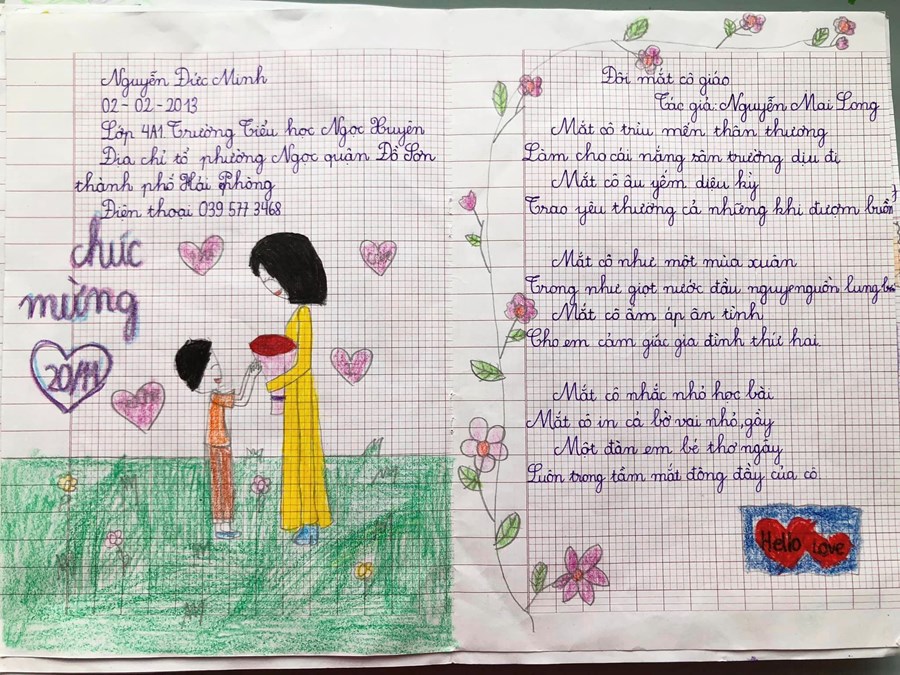 Nguyễn Đức Minh
02-02-2013
Lớp 4A1 Trường Tiểu học Ngọc Xuyên
Địa chỉ tổ phường Ngọc quận Đồ Sơn
thành phố Hải Phòng
Điện thoại 039 577 3468
chúc
mừng
20/11
Đôi mắt cô giáo
Tác giả: Nguyễn Mai Long
Mắt cô trìu mến thân thương
Làm cho cái nắng sân trường dịu đi
Mắt cô âu yếm diệu kỳ
Trao yêu thương cả những khi đượm buồn
Mắt cô như một mùa xuân
Trong như giọt nước đầu nguyenguồn lung
Mắt cô ấm áp ân tình
Cho em cảm giác gia đình thứ hai.
Mắt cô nhắc nhỏ học bài
Mắt cô in cả bờ vai nhỏ, gầy
Một đàn em bé thơ ngây
Luôn trong tầm mắt đông đầy của cô.
Hello Love